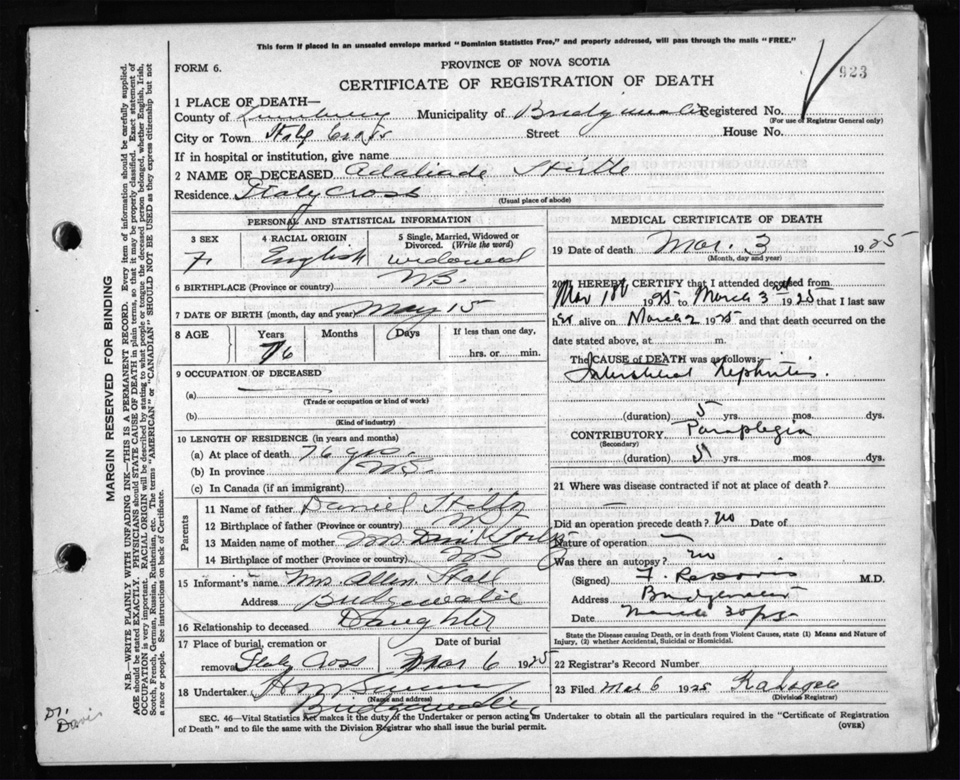 This form if placed in an unsealed envelope marked "Dominion Statistics Free," and properly addressed, will pass through the mails "FREE."
PROVINCE OF NOVA SCOTIA
923
FORM 6.
CERTIFICATE OF REGISTRATION OF DEATH
1 PLACE OF DEATH—
County of Lunenburg Municipality of Bridgewater Registered No.
(For use of Registrar General only)
City or Town Italy Cross Street House No.
If in hospital or institution, give name
2 NAME OF DECEASED Adaliade Hirtle
Residence Italy Cross
(Usual place of abode)
PERSONAL AND STATISTICAL INFORMATION
3 SEX 4 RACIAL ORIGIN 5 Single, Married, Widowed or Divorced. (Write the word)
F. English widowed
6 BIRTHPLACE (Province or Country) N.S.
7 DATE OF BIRTH (month, day and year) May 15
8 AGE Years Months Days If less than one day,
76 hrs. or min.
9 OCCUPATION OF DECEASED
(a)
(Trade or occupation or kind of work)
(b)
(Kind of industry)
10 LENGTH OF RESIDENCE (in years and months)
(a) At place of death 76 yrs.
(b) In province N.S.
(c) In Canada (if an immigrant)
Parents
11 Name of father Daniel
12 Birthplace of father (Province or country) N.S.
13 Maiden name of mother Mrs.
14 Birthplace of mother (Province or country) N.S.
15 Informant's name Mrs. Allen
Address Bridgewater
16 Relationship to deceased Daughter
17 Place of burial, cremation or Date of burial
removal Italy Cross Mar 6 1925
18 Undertaker
(Name and address)
Bridgewater
MEDICAL CERTIFICATE OF DEATH
19 Date of death Mar. 3 1925
(Month, day and year)
20 I HEREBY CERTIFY that I attended deceased from
Mar 1st 1925 to March 3rd 1925 that I last saw
her alive on March 2 1925 and that death occurred on the
date stated above, at m.
The CAUSE of DEATH was as follows:
Interstitial Nephritis.
(duration) 5 yrs. mos. dys.
CONTRIBUTORY Paraplegia
(Secondary)
(duration) 5 yrs. mos. dys.
21 Where was disease contracted if not at place of death?
Did an operation precede death? no Date of
Nature of operation —
Was there an autopsy? no
(Signed) F. Davis M.D.
Address Bridgewater
Date March
State the Disease causing Death, or in death from Violent Causes, state (1) Means and Nature of Injury, (2) whether Accidental, Suicidal or Homicidal.
22 Registrar's Record Number
23 Filed Mar 6 1925
(Division Registrar)
SEC. 46—Vital Statistics Act makes it the duty of the Undertaker or person acting as Undertaker to obtain all the particulars required in the "Certificate of Registration
of Death" and to file the same with the Division Registrar who shall issue the burial permit. (OVER)
MARGIN RESERVED FOR BINDING
N.B.—WRITE PLAINLY WITH UNFADING INK—THIS IS A PERMANENT RECORD. Every item of information should be carefully supplied.
AGE should be stated EXACTLY. PHYSICIANS should STATE CAUSE OF DEATH in plain terms, so that it may be properly classified. Exact statement of
OCCUPATION is very important. RACIAL ORIGIN will be described by stating to what people or tongue the deceased person belonged, whether English, Irish,
Scotch, French, German, Russian, Ruthenian, etc. The terms "AMERICAN" or "CANADIAN" SHOULD NOT BE USED as they express citizenship but not
a race or people. See instructions on back of Certificate.
Dr.
Davis